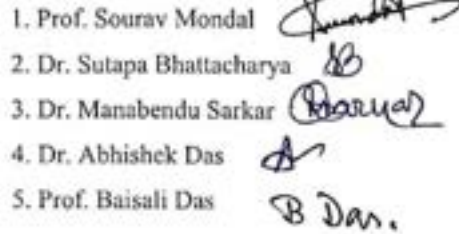 1. Prof. Sourav Mondal
2. Dr. Sutapa Bhattacharya
3. Dr. Manabendu Sarkar
4. Dr. Abhishek Das
5. Prof. Baisali Das B Das.